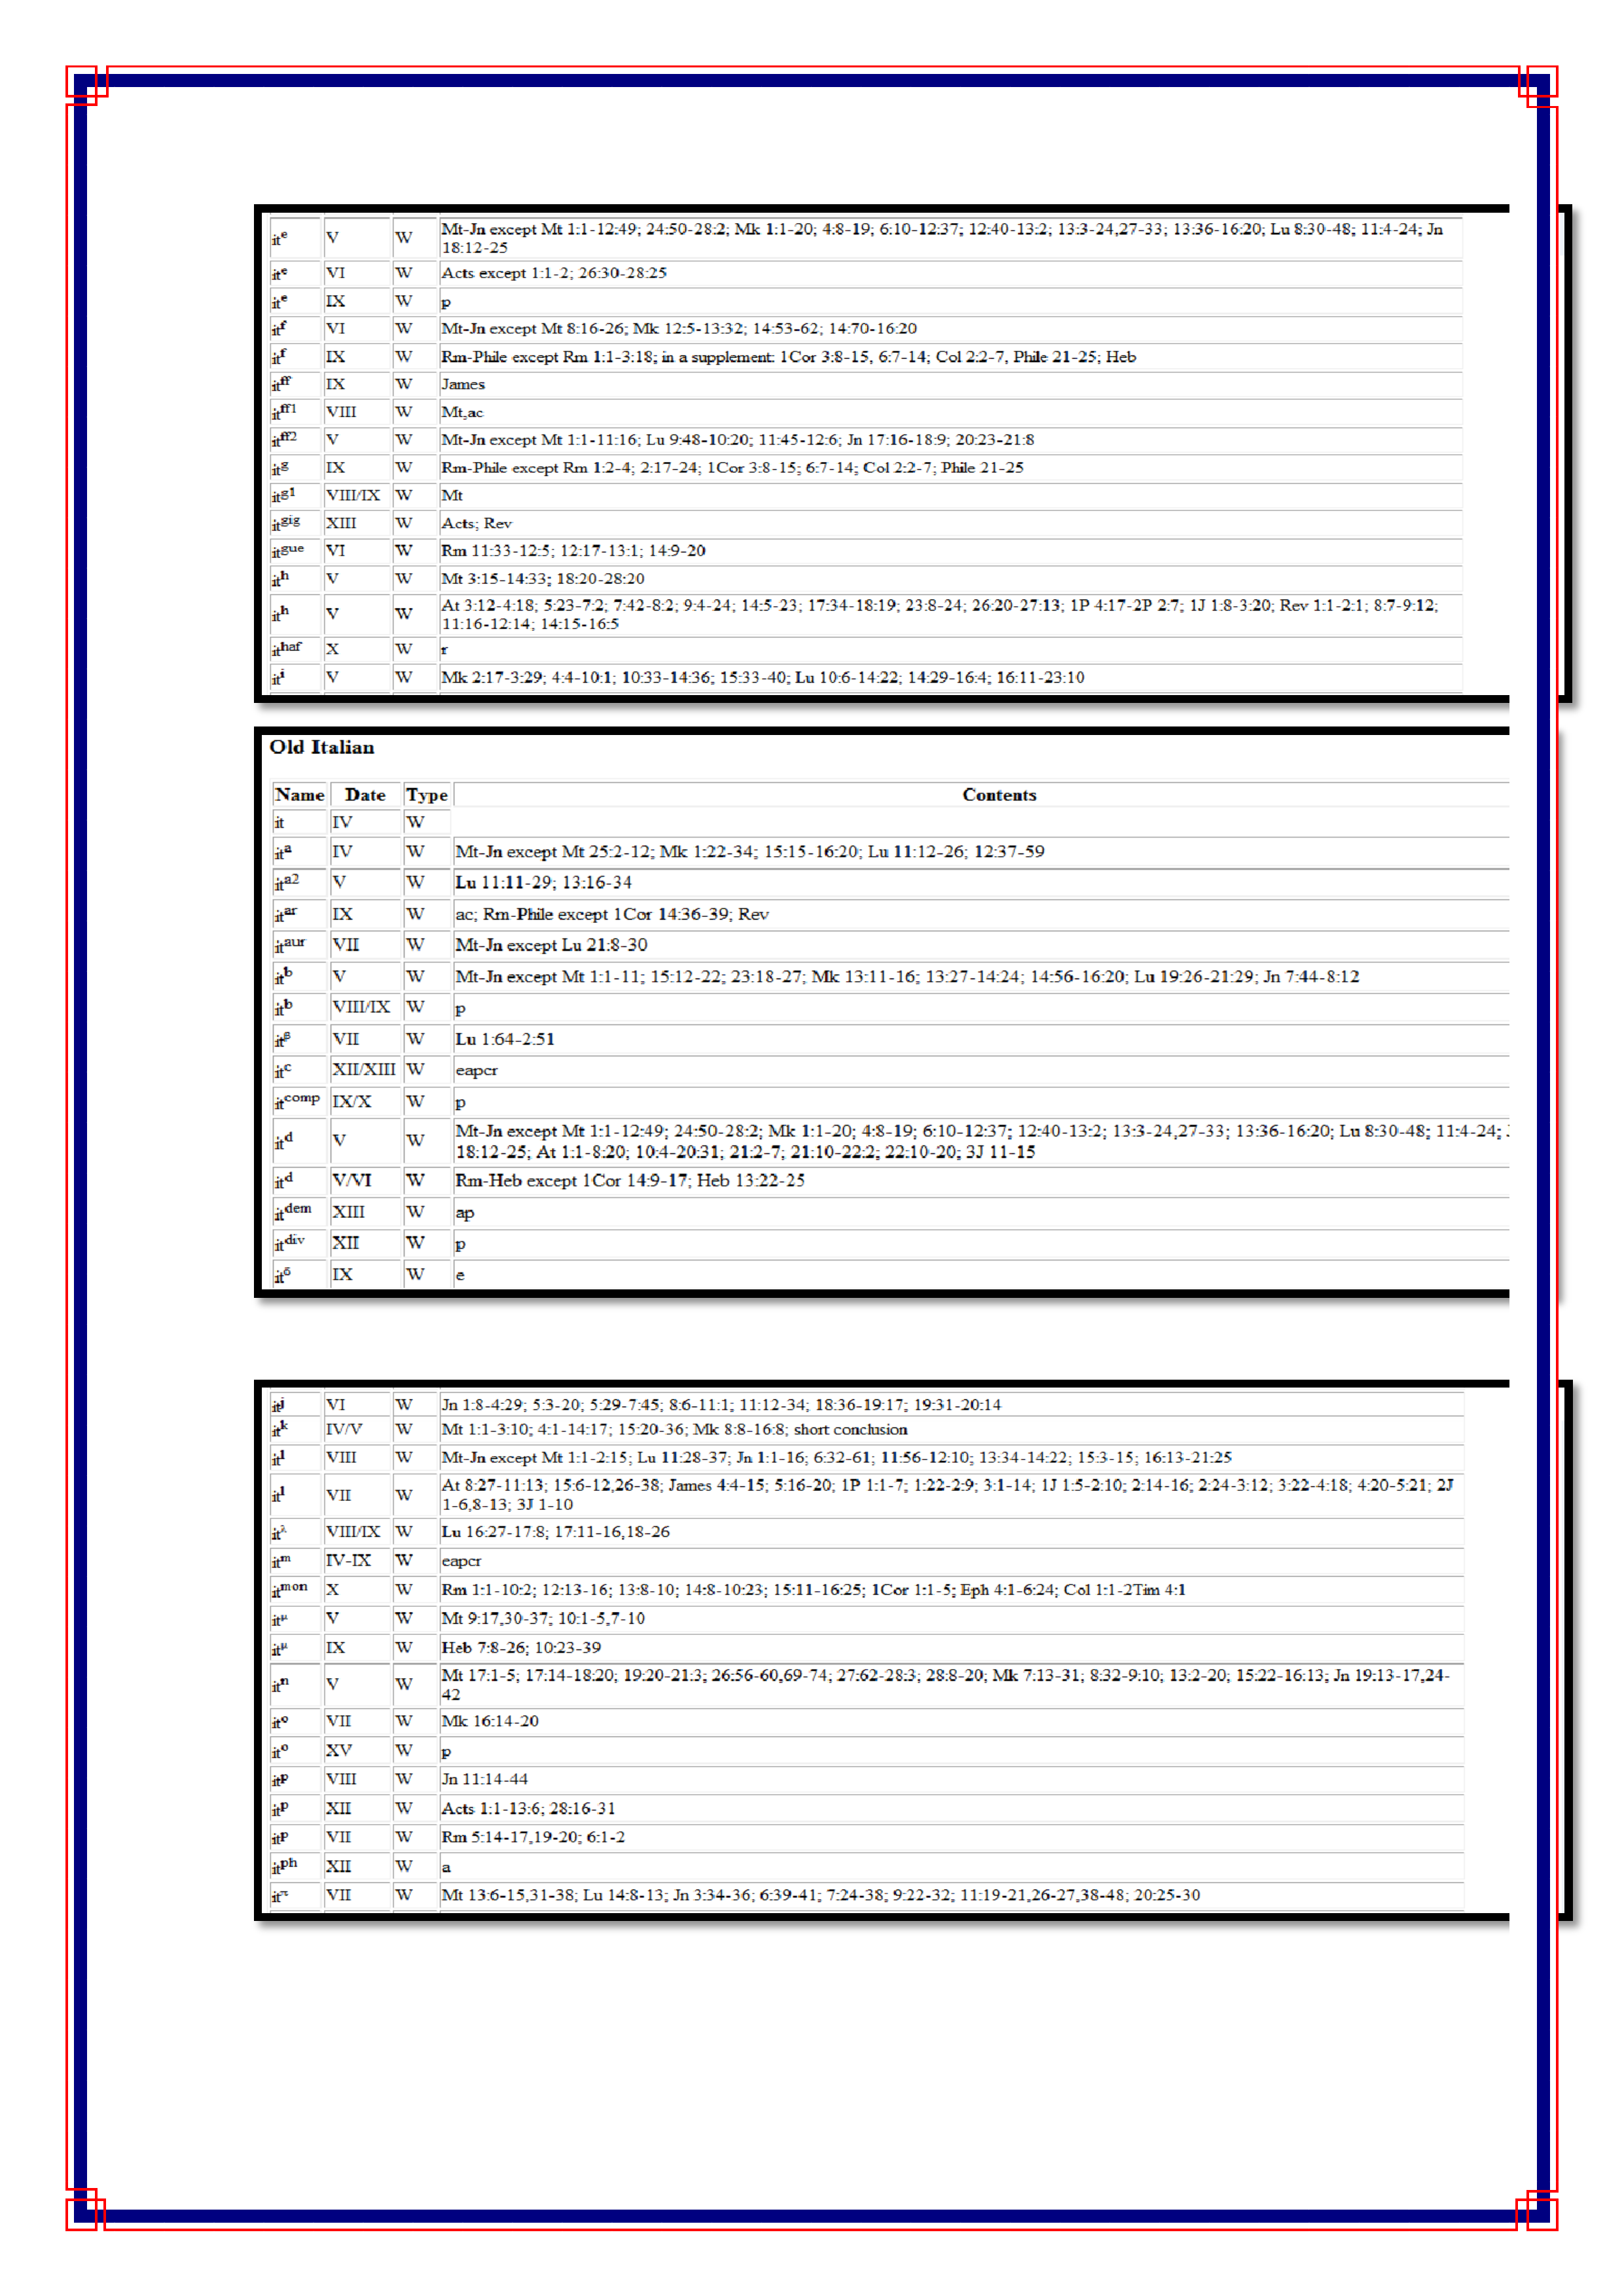 it^e V W Mt-Jn except Mt 1:1-12:49; 24:50-28:2; Mk 1:1-20; 4:8-19; 6:10-12:37; 12:40-13:2; 13:3-24,27-33; 13:36-16:20; Lu 8:30-48; 11:4-24; Jn
18:12-25
it^e VI W Acts except 1:1-2; 26:30-28:25
it^e IX W p
it^f VI W Mt-Jn except Mt 8:16-26; Mk 12:5-13:32; 14:53-62; 14:70-16:20
it^f IX W Rm-Phile except Rm 1:1-3:18; in a supplement: 1Cor 3:8-15, 6:7-14; Col 2:2-7, Phile 21-25; Heb
it^ff IX W James
it^ff1 VIII W Mt,ac
it^ff2 V W Mt-Jn except Mt 1:1-11:16; Lu 9:48-10:20; 11:45-12:6; Jn 17:16-18:9; 20:23-21:8
it^g IX W Rm-Phile except Rm 1:2-4; 2:17-24; 1Cor 3:8-15; 6:7-14; Col 2:2-7; Phile 21-25
it^g1 VIII/IX W Mt
it^gig XIII W Acts; Rev
it^gue VI W Rm 11:33-12:5; 12:17-13:1; 14:9-20
it^h V W Mt 3:15-14:33; 18:20-28:20
it^h V W At 3:12-4:18; 5:23-7:2; 7:42-8:2; 9:4-24; 14:5-23; 17:34-18:19; 23:8-24; 26:20-27:13; 1P 4:17-2P 2:7; 1J 1:8-3:20; Rev 1:1-2:1; 8:7-9:12;
11:16-12:14; 14:15-16:5
it^haf X W r
it^i V W Mk 2:17-3:29; 4:4-10:1; 10:33-14:36; 15:33-40; Lu 10:6-14:22; 14:29-16:4; 16:11-23:10
Old Italian
Name Date Type Contents
it IV W
it^a IV W Mt-Jn except Mt 25:2-12; Mk 1:22-34; 15:15-16:20; Lu 11:12-26; 12:37-59
it^a2 V W Lu 11:11-29; 13:16-34
it^ar IX W ac; Rm-Phile except 1Cor 14:36-39; Rev
it^aur VII W Mt-Jn except Lu 21:8-30
it^b V W Mt-Jn except Mt 1:1-11; 15:12-22; 23:18-27; Mk 13:11-16; 13:27-14:24; 14:56-16:20; Lu 19:26-21:29; Jn 7:44-8:12
it^b VIII/IX W p
it^β VII W Lu 1:64-2:51
it^c XII/XIII W eapcr
it^comp IX/X W p
it^d V W Mt-Jn except Mt 1:1-12:49; 24:50-28:2; Mk 1:1-20; 4:8-19; 6:10-12:37; 12:40-13:2; 13:3-24,27-33; 13:36-16:20; Lu 8:30-48; 11:4-24;
18:12-25; At 1:1-8:20; 10:4-20:31; 21:2-7; 21:10-22:2; 22:10-20; 3J 11-15
it^d V/VI W Rm-Heb except 1Cor 14:9-17; Heb 13:22-25
it^dem XIII W ap
it^div XII W p
it^δ IX W e
it^j VI W Jn 1:8-4:29; 5:3-20; 5:29-7:45; 8:6-11:1; 11:12-34; 18:36-19:17; 19:31-20:14
it^k IV/V W Mt 1:1-3:10; 4:1-14:17; 15:20-36; Mk 8:8-16:8; short conclusion
it^l VIII W Mt-Jn except Mt 1:1-2:15; Lu 11:28-37; Jn 1:1-16; 6:32-61; 11:56-12:10; 13:34-14:22; 15:3-15; 16:13-21:25
it^l VII W At 8:27-11:13; 15:6-12,26-38; James 4:4-15; 5:16-20; 1P 1:1-7; 1:22-2:9; 3:1-14; 1J 1:5-2:10; 2:14-16; 2:24-3:12; 3:22-4:18; 4:20-5:21; 2J
1-6,8-13; 3J 1-10
it^λ VIII/IX W Lu 16:27-17:8; 17:11-16,18-26
it^m IV-IX W eapcr
it^mon X W Rm 1:1-10:2; 12:13-16; 13:8-10; 14:8-10:23; 15:11-16:25; 1Cor 1:1-5; Eph 4:1-6:24; Col 1:1-2Tim 4:1
it^μ V W Mt 9:17,30-37; 10:1-5,7-10
it^μ IX W Heb 7:8-26; 10:23-39
it^n V W Mt 17:1-5; 17:14-18:20; 19:20-21:3; 26:56-60,69-74; 27:62-28:3; 28:8-20; Mk 7:13-31; 8:32-9:10; 13:2-20; 15:22-16:13; Jn 19:13-17,24-
42
it^o VII W Mk 16:14-20
it^o XV W p
it^p VIII W Jn 11:14-44
it^p XII W Acts 1:1-13:6; 28:16-31
it^p VII W Rm 5:14-17,19-20; 6:1-2
it^ph XII W a
it^π VII W Mt 13:6-15,31-38; Lu 14:8-13; Jn 3:34-36; 6:39-41; 7:24-38; 9:22-32; 11:19-21,26-27,38-48; 20:25-30